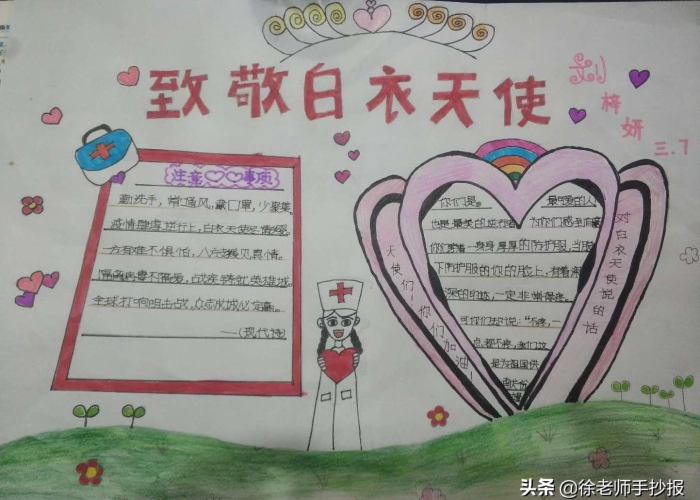 致敬白衣天使
刘梓妍
三.7
注意事项
勤洗手,常通风,戴口罩,少聚集。
疫情蹭蹭逆行上,白衣天使
一方有难不惧怕,八方支援见真情。
全球打响阻击战,众志成城必定赢。
——(现代诗)
你们是。最可爱的人
也是最美的逆行者。为你们感到自豪
你们穿着一身身厚厚的防护服,当脱
下防护服的你的脸上,有着深
深的印迹,一定非常疼。
可你们却说:“不疼,一
点都不疼,我们这
是为祖国供
天使们!你们加油!
对白衣天使说的话
头条 @徐老师手抄报